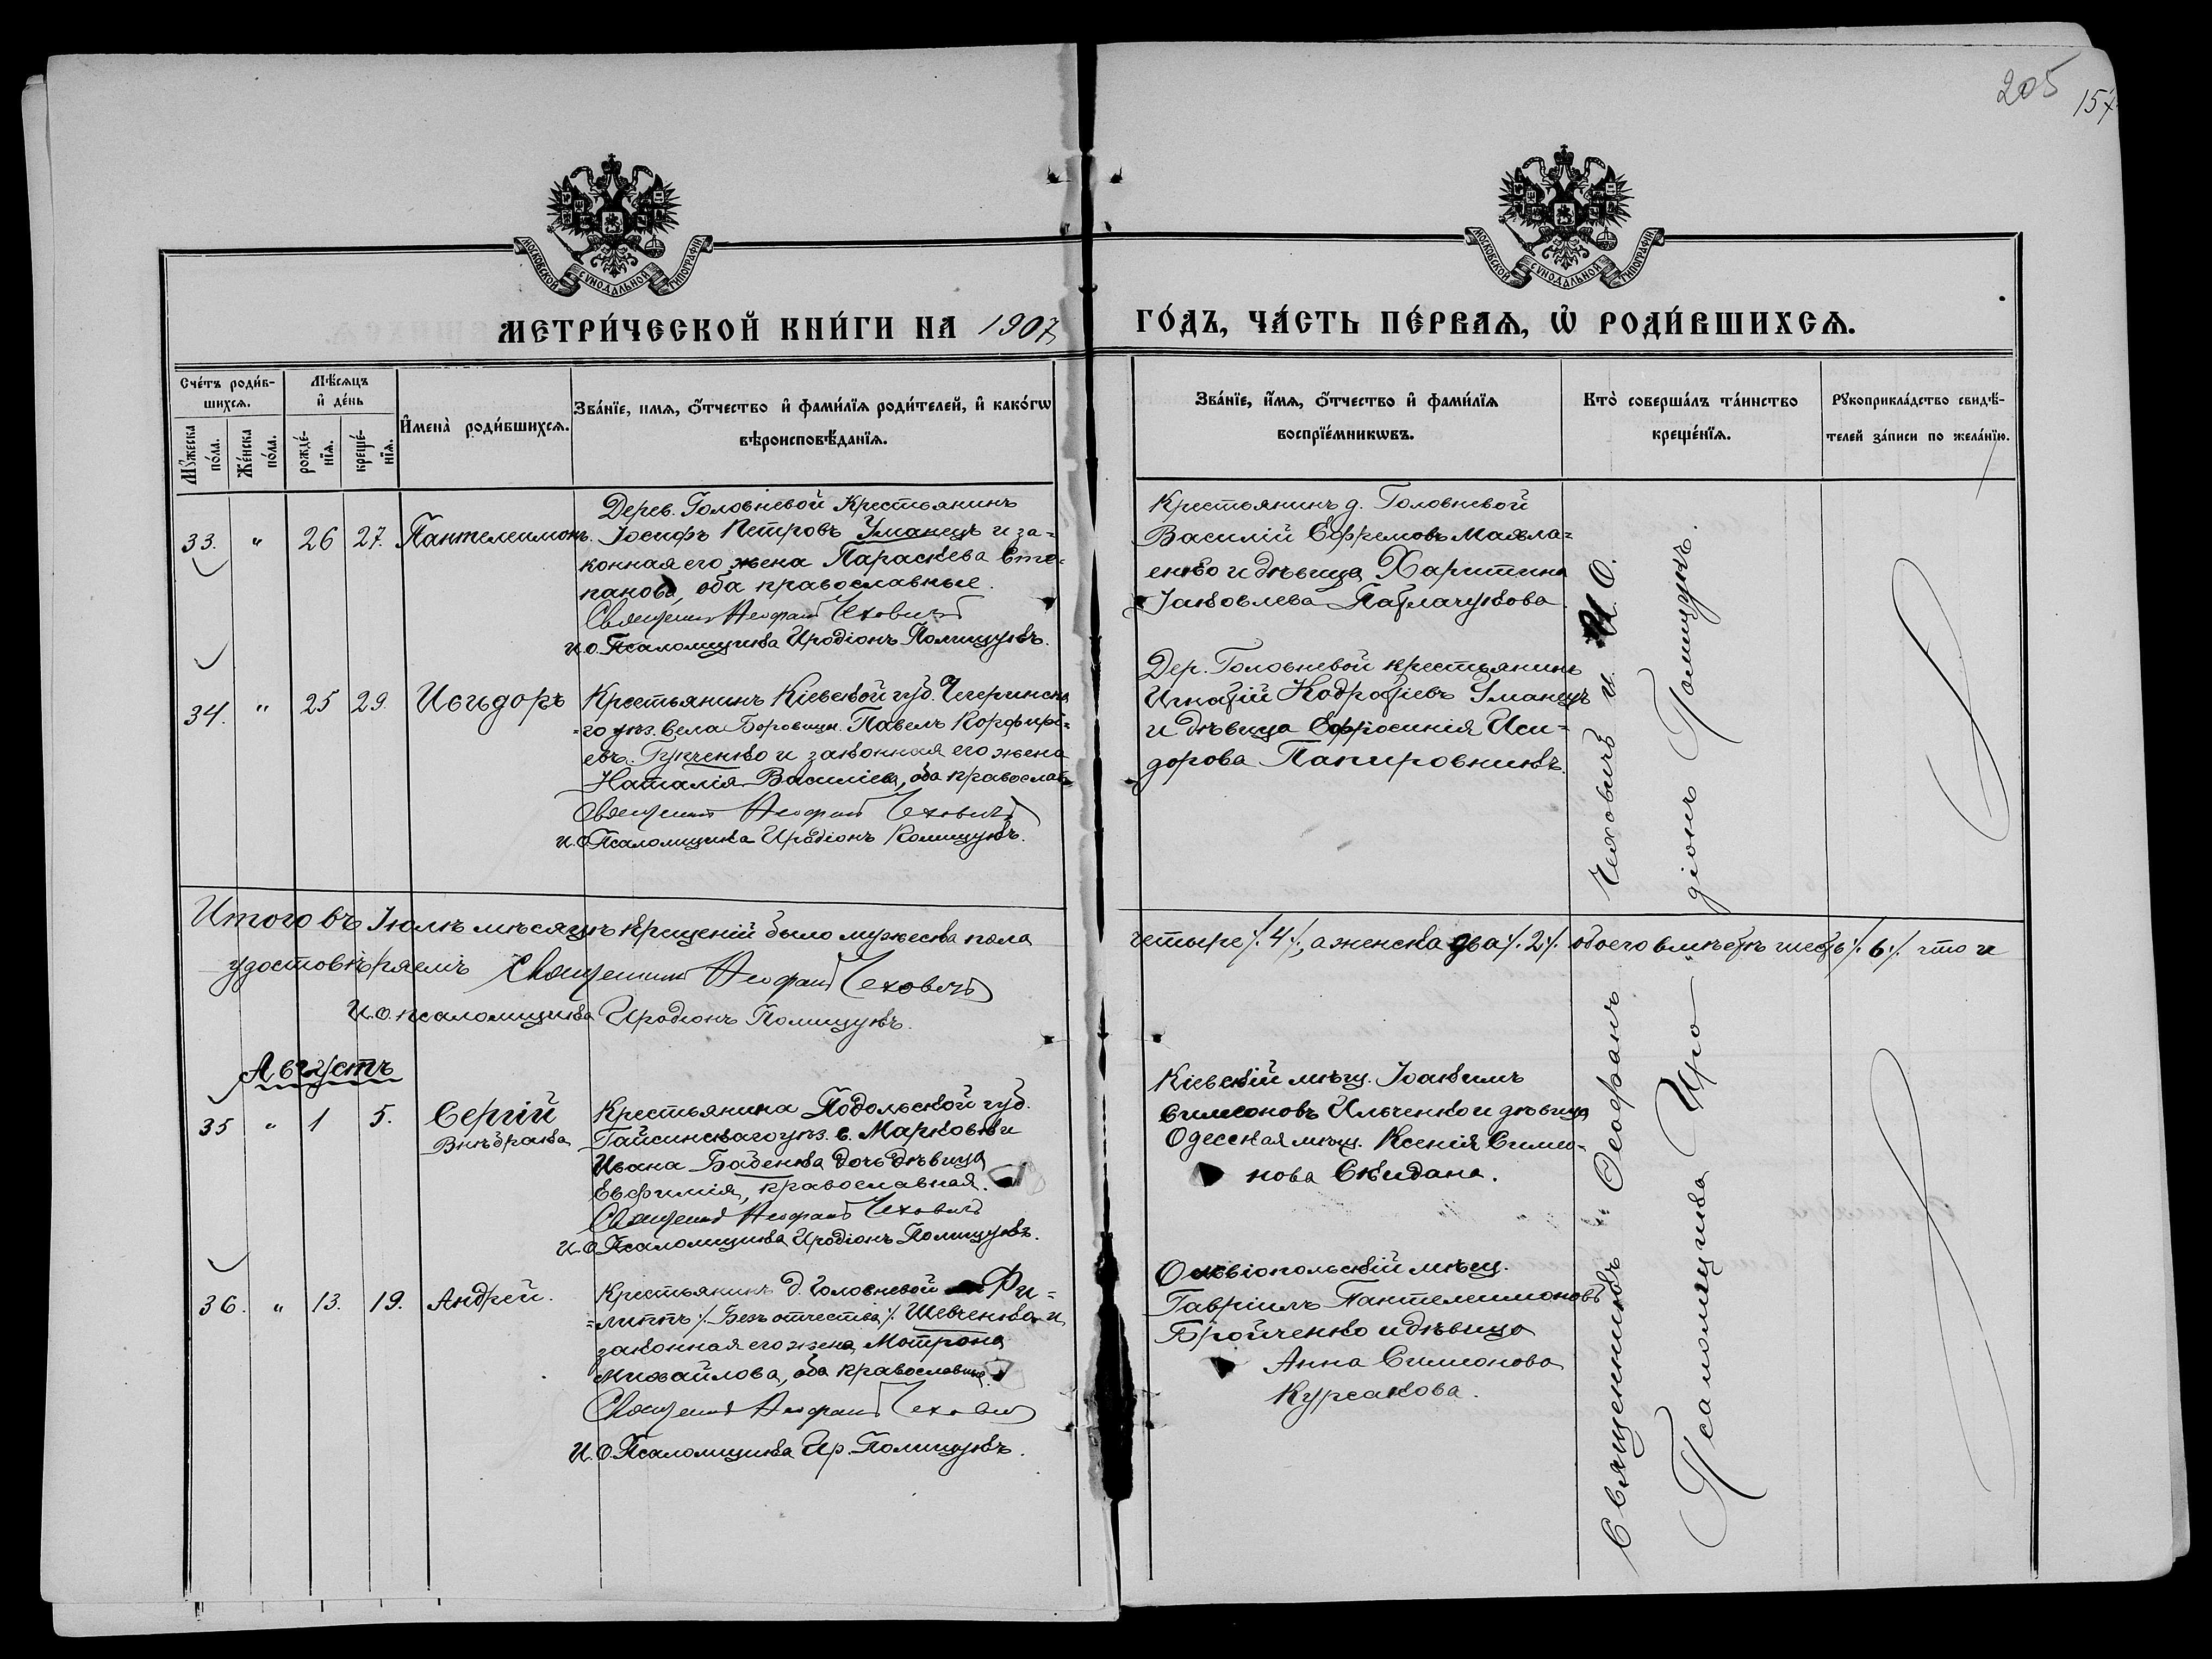 205
157
МОСКОВСКОЙ СУНОДАЛЬНОЙ ТИПОГРАФІИ
МОСКОВСКОЙ СУНОДАЛЬНОЙ ТИПОГРАФІИ
МЕТРИ́ЧЕСКОЙ КНИ́ГИ НА 1907
ГО́ДЪ, ЧА́СТЬ ПЕ́РВАѦ, Ѡ҆ РОДИ́ВШИХСѦ.
Сче́тъ роди́в-
шихсѧ.
Мꙋ́жеска по́ла.
Же́нска по́ла.
Мѣ́сѧцъ
и҆ де́нь
рожде́-
нїѧ.
креще́-
нїѧ.
И҆мена̀ роди́вшихсѧ.
Зва́нїе, имѧ, ѻ҆́тчество и҆ фами́лїѧ роди́телей, и҆ како́гѡ
вѣроисповѣ́данїѧ.
Зва́нїе, и҆́мѧ, ѻ҆́тчество и҆ фами́лїѧ
воспрїе́мникѡвъ.
Кто̀ соверша́лъ та́инство
креще́нїѧ.
Рꙋкоприкла́дство свидѣ́-
телей за́писи по жела́нїю.
33. " 26 27. Пантелеимонъ.
Дерев. Головневой Крестьянинъ
Іосифъ Петровъ Уманецъ и за-
конная его жена Параскева Сте-
панова, оба православные.
Священникъ Ѳеофанъ Чеховичъ
И.О. Псаломщика Иродіонъ Полищукъ.
Крестьянинъ д. Головневой
Василій Ефремовъ Маявла-
енко и дѣвица Харитина
Іаковлева
34. " 25 29. Исидоръ
Крестьянинъ Кіевской губ. Чегеринска
-го уѣз. села Боровицы Павелъ Корфирі-
евъ и законная его жена
Наталія Василіева, оба православ
Священникъ Ѳеофанъ Чеховичъ
И.О. Псаломщика Иродіонъ Полищукъ.
Дер. Головневой крестьянинъ
Игнатій Кодратіевъ Уманецъ
и дѣвица Ефросинія Иси-
дорова Папировникъ.
Итого въ Іюлѣ мѣсяцѣ крещеній было мужеска пола
четыре ⁒ 4 ⁒, а женска два ⁒ 2 ⁒ обоего вмѣстѣ шесть ⁒ 6 ⁒ что и
удостовѣряемъ Священникъ Ѳеофанъ Чеховичъ
И.О. псаломщика Иродіонъ Полищукъ.
Августъ
35 " 1 5. Сергій
Внѣбрака
Крестьянина Подольской губ.
Гайсинскаго уѣз. с. Марковки
Ивана Бабенка дочь дѣвица
Евфимія, православная.
Священникъ Ѳеофанъ Чеховичъ
И.О. Псаломщика Иродіонъ Полищукъ.
Кіевскій мѣщ. Іоакимъ
Симеоновъ Ильченко и дѣвица
Одесская мѣщ. Ксенія Симео-
нова Скидана.
36. " 13. 19. Андрей.
Крестьянинъ д. Головневой Фи-
-липпъ ⁒ Безъ отчества ⁒ Шевченко и
законная его жена Матрона
Михайлова, оба православные.
Священникъ Ѳеофанъ Чеховичъ
И.О. Псаломщика Ир. Полищукъ.
Ольвіопольскій мѣщ.
Гавріилъ Пантелеимоновъ
Бройченко и дѣвица
Анна Симонова
Курсакова.
Священникъ Ѳеофанъ Чеховичъ и И.О.
Псаломщика Иродіонъ Полищукъ.